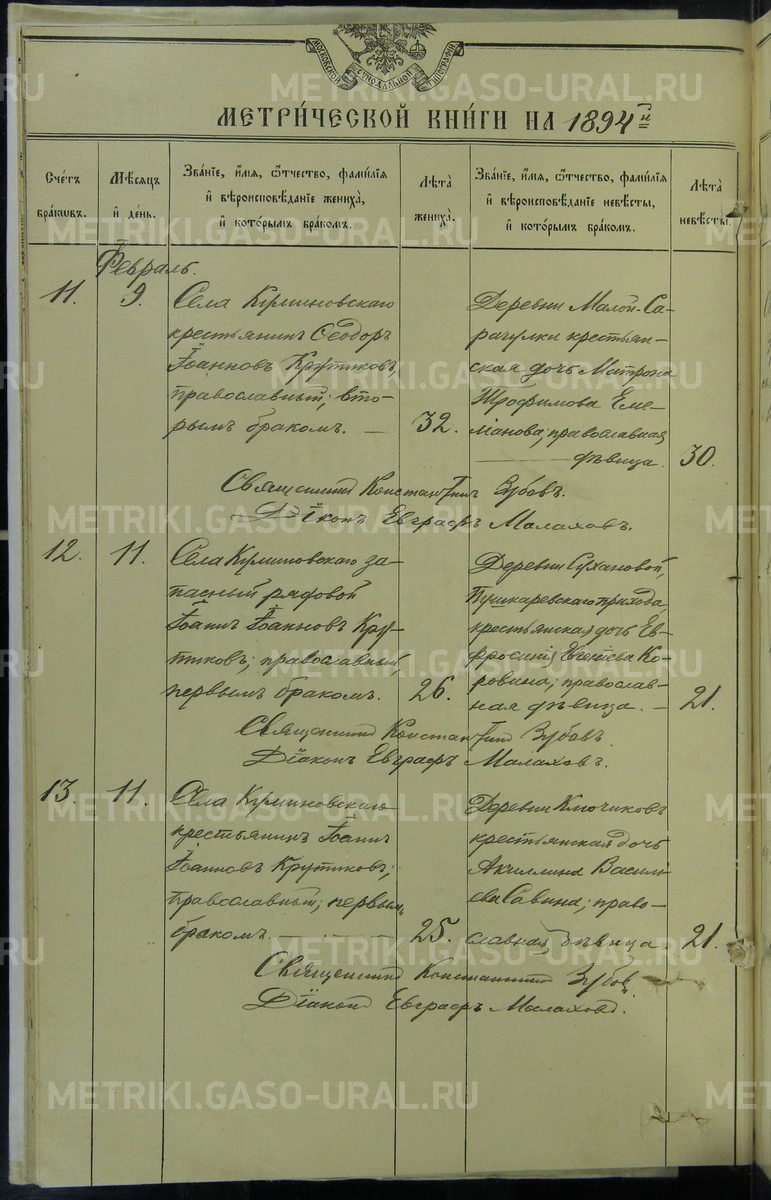 МОСКОВСКОЙ СѴНОДАЛЬНОЙ ТИПОГРАФІИ
МЕТРИ́ЧЕСКОЙ КНИ́ГИ НА 1894 й
Счетъ браковъ.
Мѣсяцъ и день.
Званіе, имя, отчество, фамилія
и вѣроисповѣданіе жениха,
и которымъ бракомъ.
Лѣта жениха.
Званіе, имя, отчество, фамилія
и вѣроисповѣданіе невѣсты,
и которымъ бракомъ.
Лѣта невѣсты.
Февраль.
11. 9.
Села
крестьянинъ Ѳеодоръ
Іоанновъ Крутиковъ,
православный; вто-
рымъ бракомъ. — 32.
Деревни Малой-Са-
рагулки крестьян-
ская дочь Матрона
Трофимова Еме-
ліанова; православная
дѣвица. 30.
Священникъ Константинъ Зубовъ.
Діаконъ Евграфъ Малаховъ.
12. 11.
Села за-
пасный рядовой
Іоаннъ Іоанновъ Кру-
тиковъ; православный,
первымъ бракомъ. 26.
Деревни Сухановой,
Пушкаревскаго прихода,
крестьянская дочь Ев-
фросинія Ко-
ровина; православ-
ная дѣвица. — 21.
Священникъ Константинъ Зубовъ
Діаконъ Евграфъ Малаховъ.
13. 11.
Села
крестьянинъ Іоаннъ
Іоанновъ Крутиковъ;
православный; первымъ
бракомъ. 25.
Деревни Ключиковъ
крестьянская дочь
Акилина Василі-
ева Савина; право-
славная дѣвица 21.
Священникъ Константинъ Зубовъ
Діаконъ Евграфъ Малаховъ.
METRIKI.GASO-URAL.RU